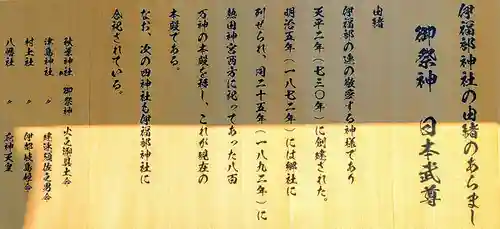 伊福部神社の由緒のあらまし
御祭神 日本武尊
由緒
伊福部の連の敬愛する神様であり
天平二年（七三〇年）に創建された。
明治五年（一八七二年）には郷社に
列せられ、同二十五年（一八九二年）に
熱田神宮西方に祀ってあった八百
万神の本殿を移し、これが現在の
本殿である。
なお、次の四神社も伊福部神社に
合祀されている。
秋葉神社 御祭神 火之迦具土命
津島神社 〃 建速須佐之男命
村上社 〃
八幡社 〃 応神天皇